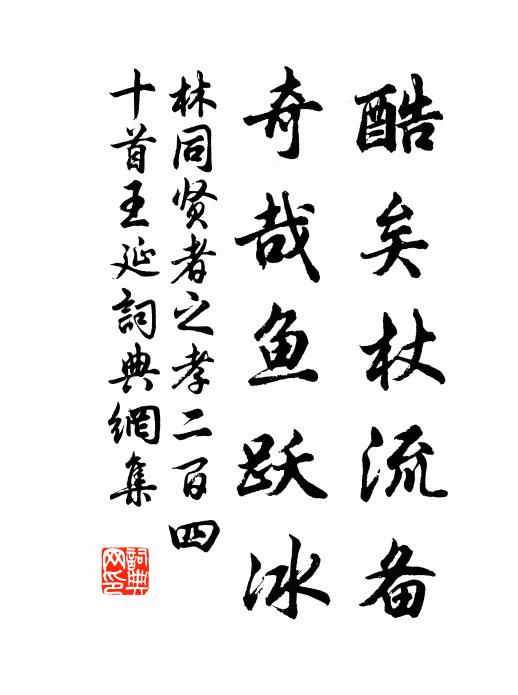 酷矣杖流备
奇哉鱼跃冰
林同贤者之孝二百四
十首王延詞典網集
詞典
网印